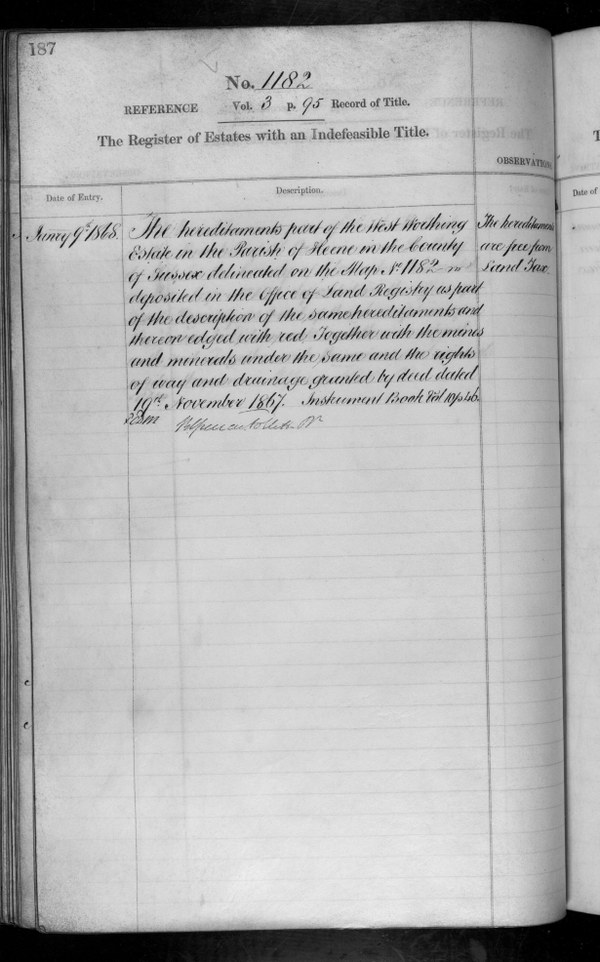 187
No. 1182
REFERENCE Vol. 3 p. 95 Record of Title.
The Register of Estates with an Indefeasible Title.
OBSERVATION
Date of Entry.
Description.
Janry 9th 1868.
The hereditaments part of the West Worthing
Estate in the Parish of Heene in the County
of Sussex delineated on the Map No 1182
deposited in the Office of Land Registry as part
of the description of the same hereditaments and
thereon edged with red Together with the mines
and minerals under the same and the rights
of way and drainage granted by deed dated
19th November 1867. Instrument Book Vol 10 p
The hereditaments
are free from
Land Tax
Date of